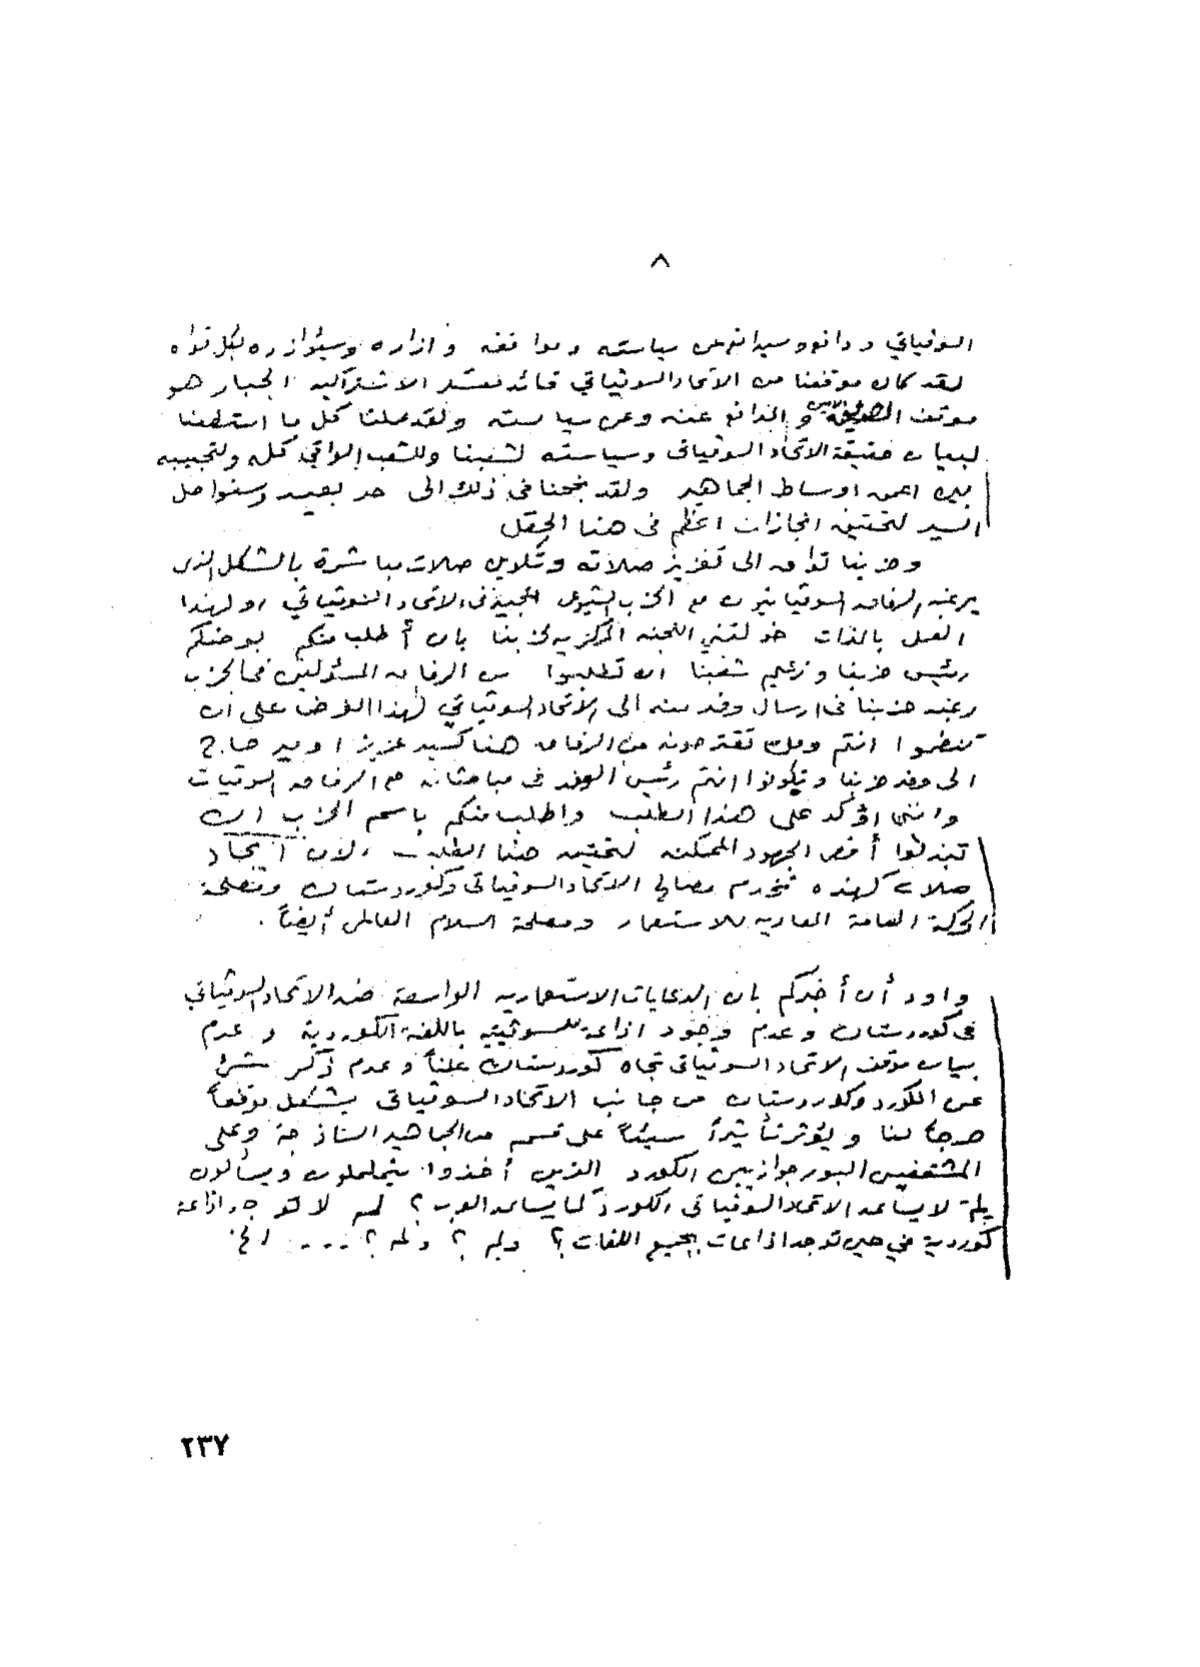 ٨
السوفياتي ودافع وسيدافع عن سياسته ومواقفه وازاره وسيؤازره بكل قواه
لقد كان موقفنا من الاتحاد السوفياتي قائد معسكر الاشتراكية الجبار هو
موقف الصديق والمدافع عنه وعن سياسته ولقد عملنا كل ما استطعنا
لبيان حقيقة الاتحاد السوفياتى وسياسته لشعبنا وللشعب العراقي كله ولتحبيبه
بين اعمق اوساط الجماهير ولقد نجحنا في ذلك الى حد بعيد وسنواصل
السير لتحقيق انجازات اعظم فى هذا الحقل
وحزبنا تواق الى تعزيز صلاته وتكوين صلات مباشرة بالشكل الذى
يرغبه الرفاق السوفياتيون مع الحزب الشيوعى المجيد فى الاتحاد السوفياتي ولهذا
العمل بالذات خولتني اللجنة المركزيه لحزبنا بان أطلب منكم بوصفكم
رئيس حزبنا وزعيم شعبنا ان تطلبوا من الرفاق المسئولين في الحزب
رغبة حزبنا فى ارسال وفد منه الى الاتحاد السوفياتي لهذا الغرض على ان
تنضموا انتم ومن تقترحونه من الرفاق هنا كسيد عزيز او مير حاج
الى وفد حزبنا وتكونوا انتم رئيس الوفد فى مباحثاته مع الرفاق السوفيات
وانني اؤكد على هذا الطلب واطلب منكم باسم الحزب ان
تبذلوا أقصى الجهود الممكنه لتحقيق هذا الطلب لان ايجاد
صلات كهذه تخدم مصالح الاتحاد السوفياتى وكوردستان ومصلحة
الحركة العامة المعاديه للاستعمار ومصلحة السلام العالمى أيضاً .
واود أن أخبركم بان الدعايات الاستعماريه الواسعة ضد الاتحاد السوفياتي
فى كوردستان وعدم وجود اذاعة للسوفييت باللغة الكوردية وعدم
بيان موقف الاتحاد السوفياتى تجاه كوردستان علناً وعدم ذكر شئ
عن الكورد وكوردستان من جانب الاتحاد السوفياتى يشكل موقفاً
حرجاً لنا ويؤثر تأثيراً سيئاً على قسم من الجماهير الساذجة وعلى
المثقفين البورجوازيين الكورد الذين أخذوا يتململون ويسألون
لم لا يساعد الاتحاد السوفياتى الكورد كما يساعد العرب ؟ لم لا توجد اذاعة
كوردية في حين توجد اذاعات بجميع اللغات ؟ ولم ؟ ولم ؟ .... الخ .
٢٣٧